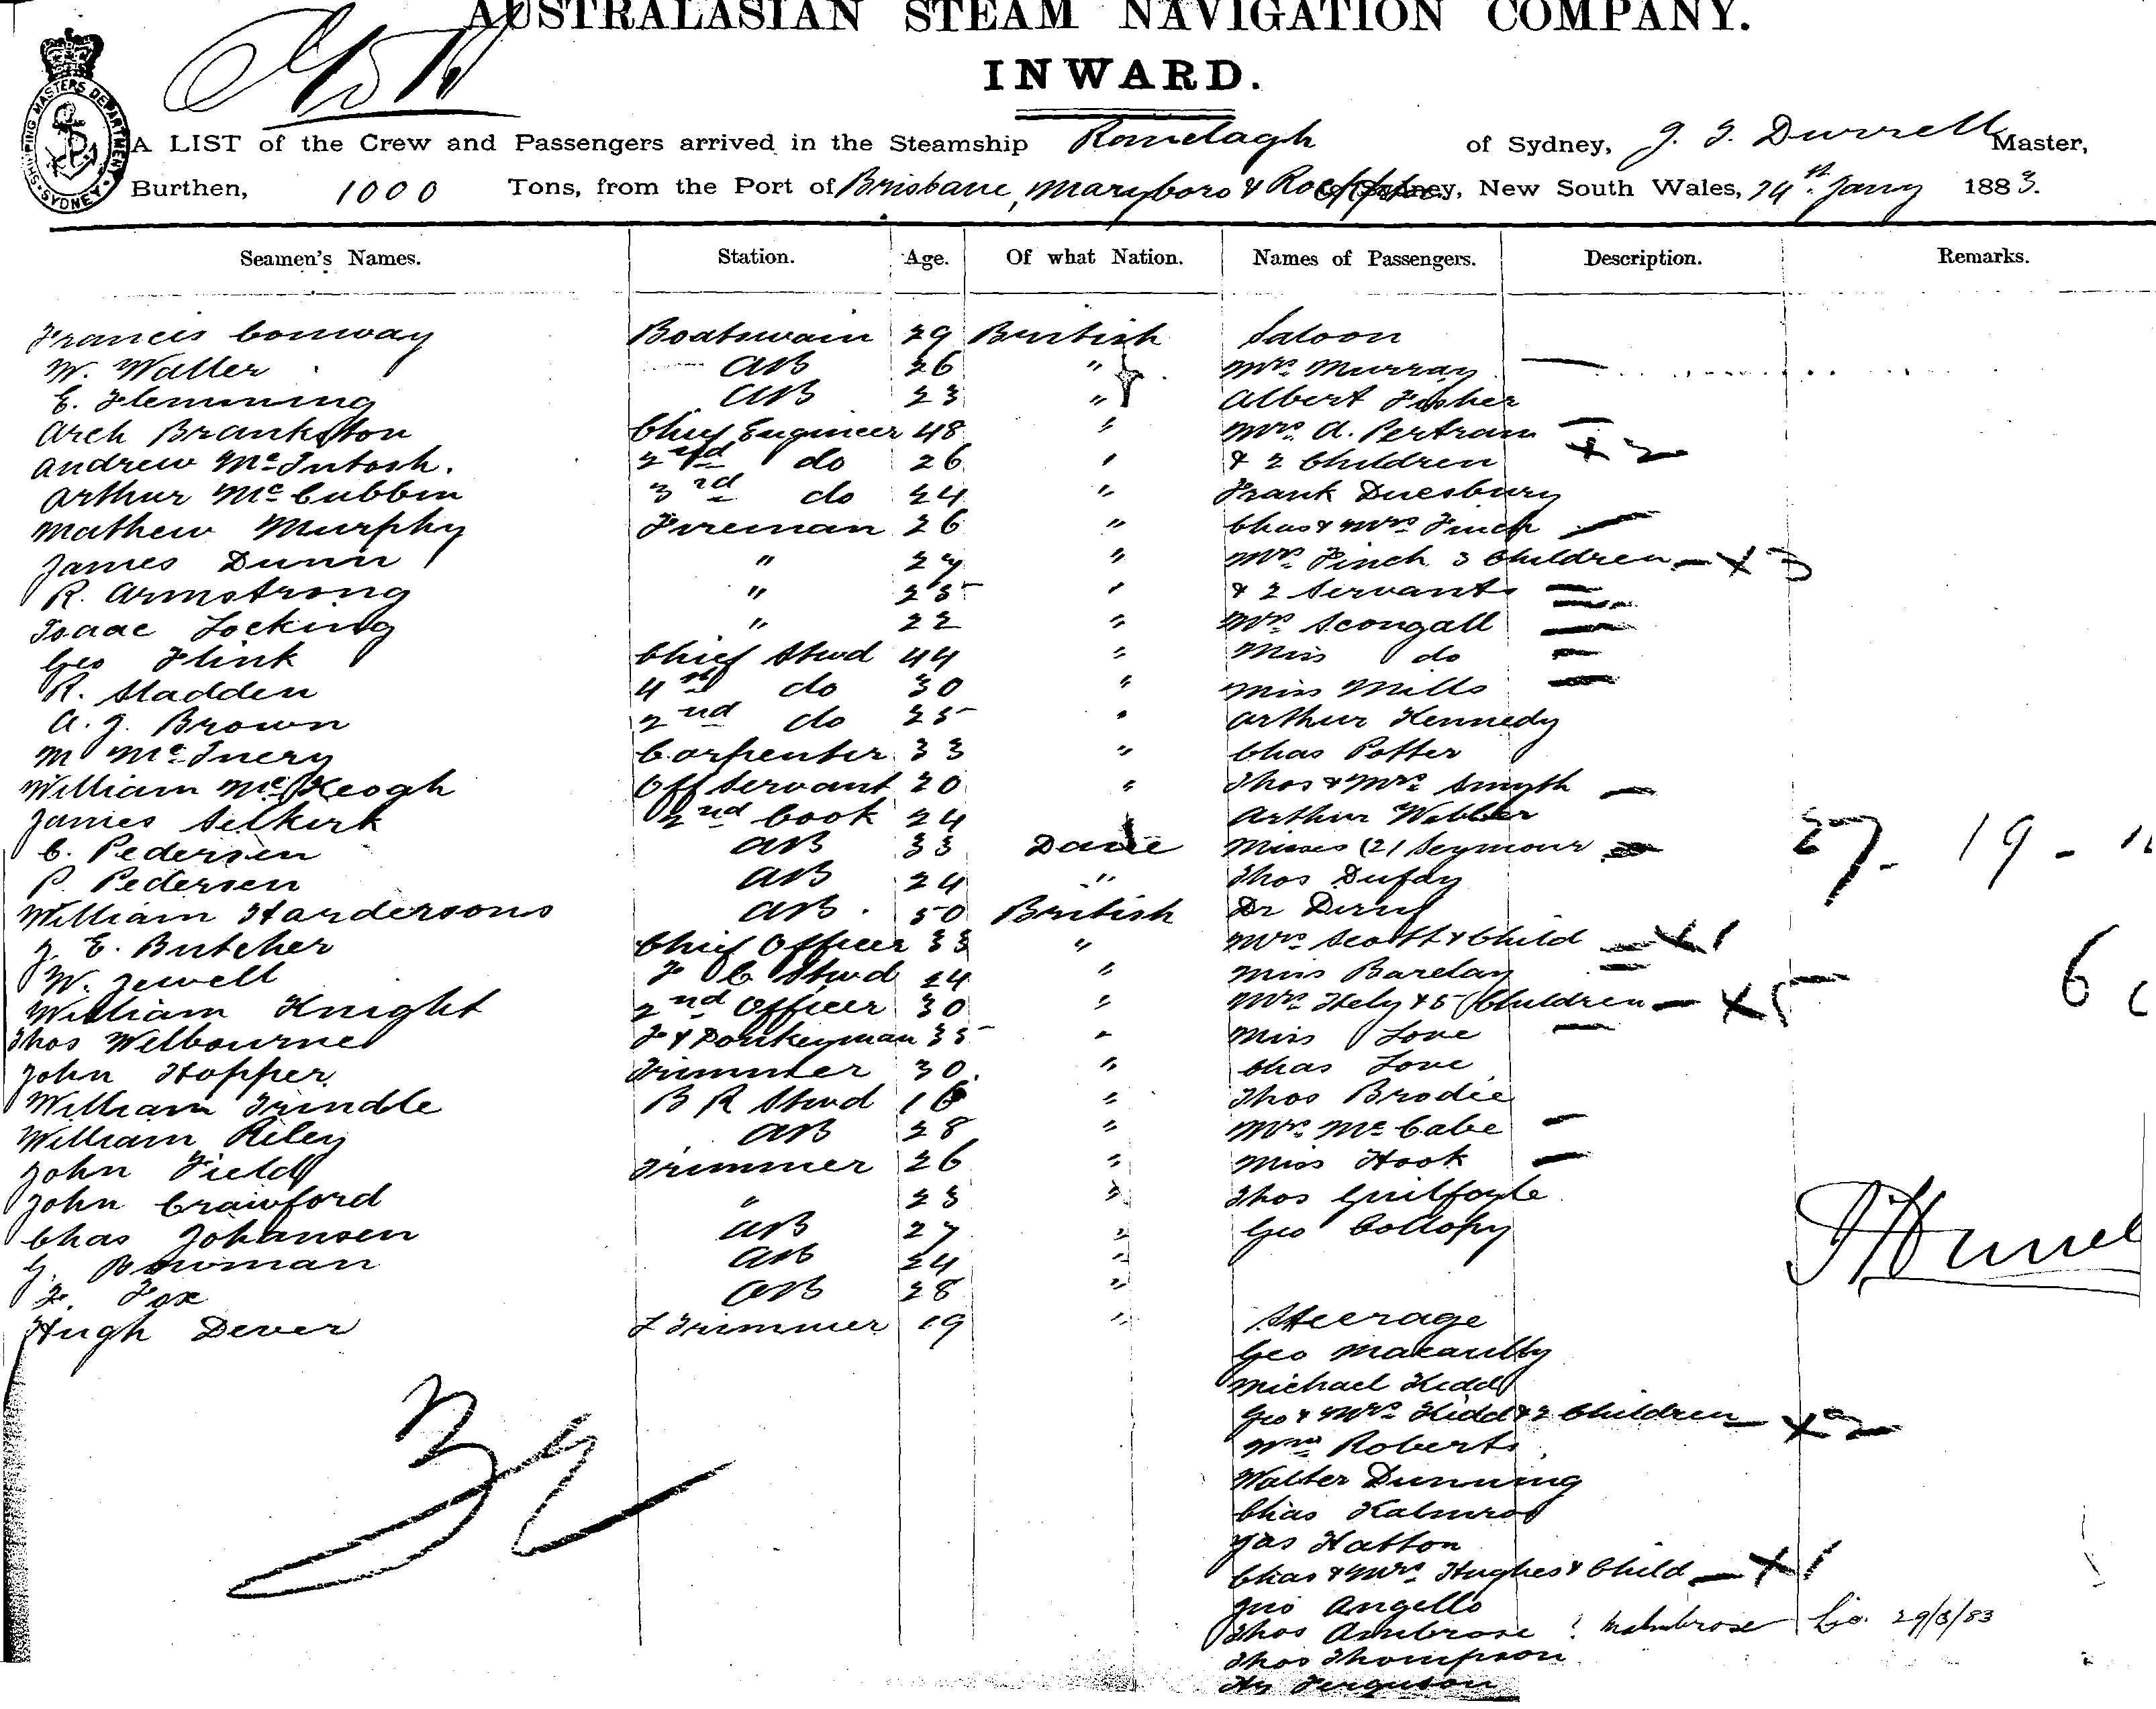 AUSTRALASIAN STEAM NAVIGATION COMPANY.
INWARD.
SHIPPING MASTERS DEPARTMENT SYDNEY
A LIST of the Crew and Passengers arrived in the Steamship Ranelagh of Sydney, Master,
Burthen, 1000 Tons, from the Port of Brisbane, Maryboro & to Sydney, New South Wales, 24th Jany 1883.
Seamen's Names. Station. Age. Of what Nation. Names of Passengers. Description. Remarks.
Francis Conway Boatswain 29 British Saloon
W. Waller AB 26 " Mrs Murray —
E. Flemming AB 23 " Albert Fisher
Arch Brankston Chief Engineer 48 " Mrs A. Pertram —
Andrew McIntosh. 2nd do 26 " & 2 Children × 2
Arthur McCubbin 3rd do 24 " Frank Duesbury
Mathew Murphy Fireman 26 " Chas & Mrs Finch —
James Dunn " 27 " Mrs Finch 3 Children — × 3
R. Armstrong " 25 " & 2 Servants =
Isaac Locking " 22 " Mrs Scougall —
Geo Flink Chief Stwd 44 " Miss do —
R. Sladden 4th do 30 " Miss Mills —
A. J. Brown 2nd do 25 " Arthur Kennedy
M McInery Carpenter 33 " Chas Potter
William McKeogh Off Servant 20 " Thos & Mrs Smyth —
James Selkirk 2nd Cook 24 Arthur Webber
C. Pedersen AB 33 Dane Misses (2) Seymour = 27 - 19 -
P. Pedersen AB 24 " Thos Dufay
William Hardersons AB. 50 British Dr
J. E. Butcher Chief Officer 33 " Mrs Scott & Child — × 1
W. Jewell F C Stwd 24 " Miss Barclay — 6
William Knight 2nd Officer 30 " Mrs Hely & 5 Children — × 5
Thos Welbourne F & Donkeyman 35 " Miss Love —
John Hopper Trimmer 30. " Chas Love
William Trindle B R Stwd 16 " Thos Brodie
William Riley AB 28 " Mrs McCabe —
John Field Trimmer 26 " Miss Hook —
John Crawford " 23 " Thos Guilfoyle
Chas Johansen AB 27 " Geo Collopy
G. Bowman AB 24 "
F. Fox AB 28 "
Steerage
Hugh Dever F Trimmer 19 "
Geo
Michael Kidd
Geo & Mrs Kidd & 2 Children — × 2
Wm Roberts
Walter Dunning
Chas
Jas Hatton
Chas & Mrs Hughes & Child — × 1
Jno Angello
Thos Ambrose ? Malmbrose 29/3/83
Thos Thompson
Hy Ferguson
32